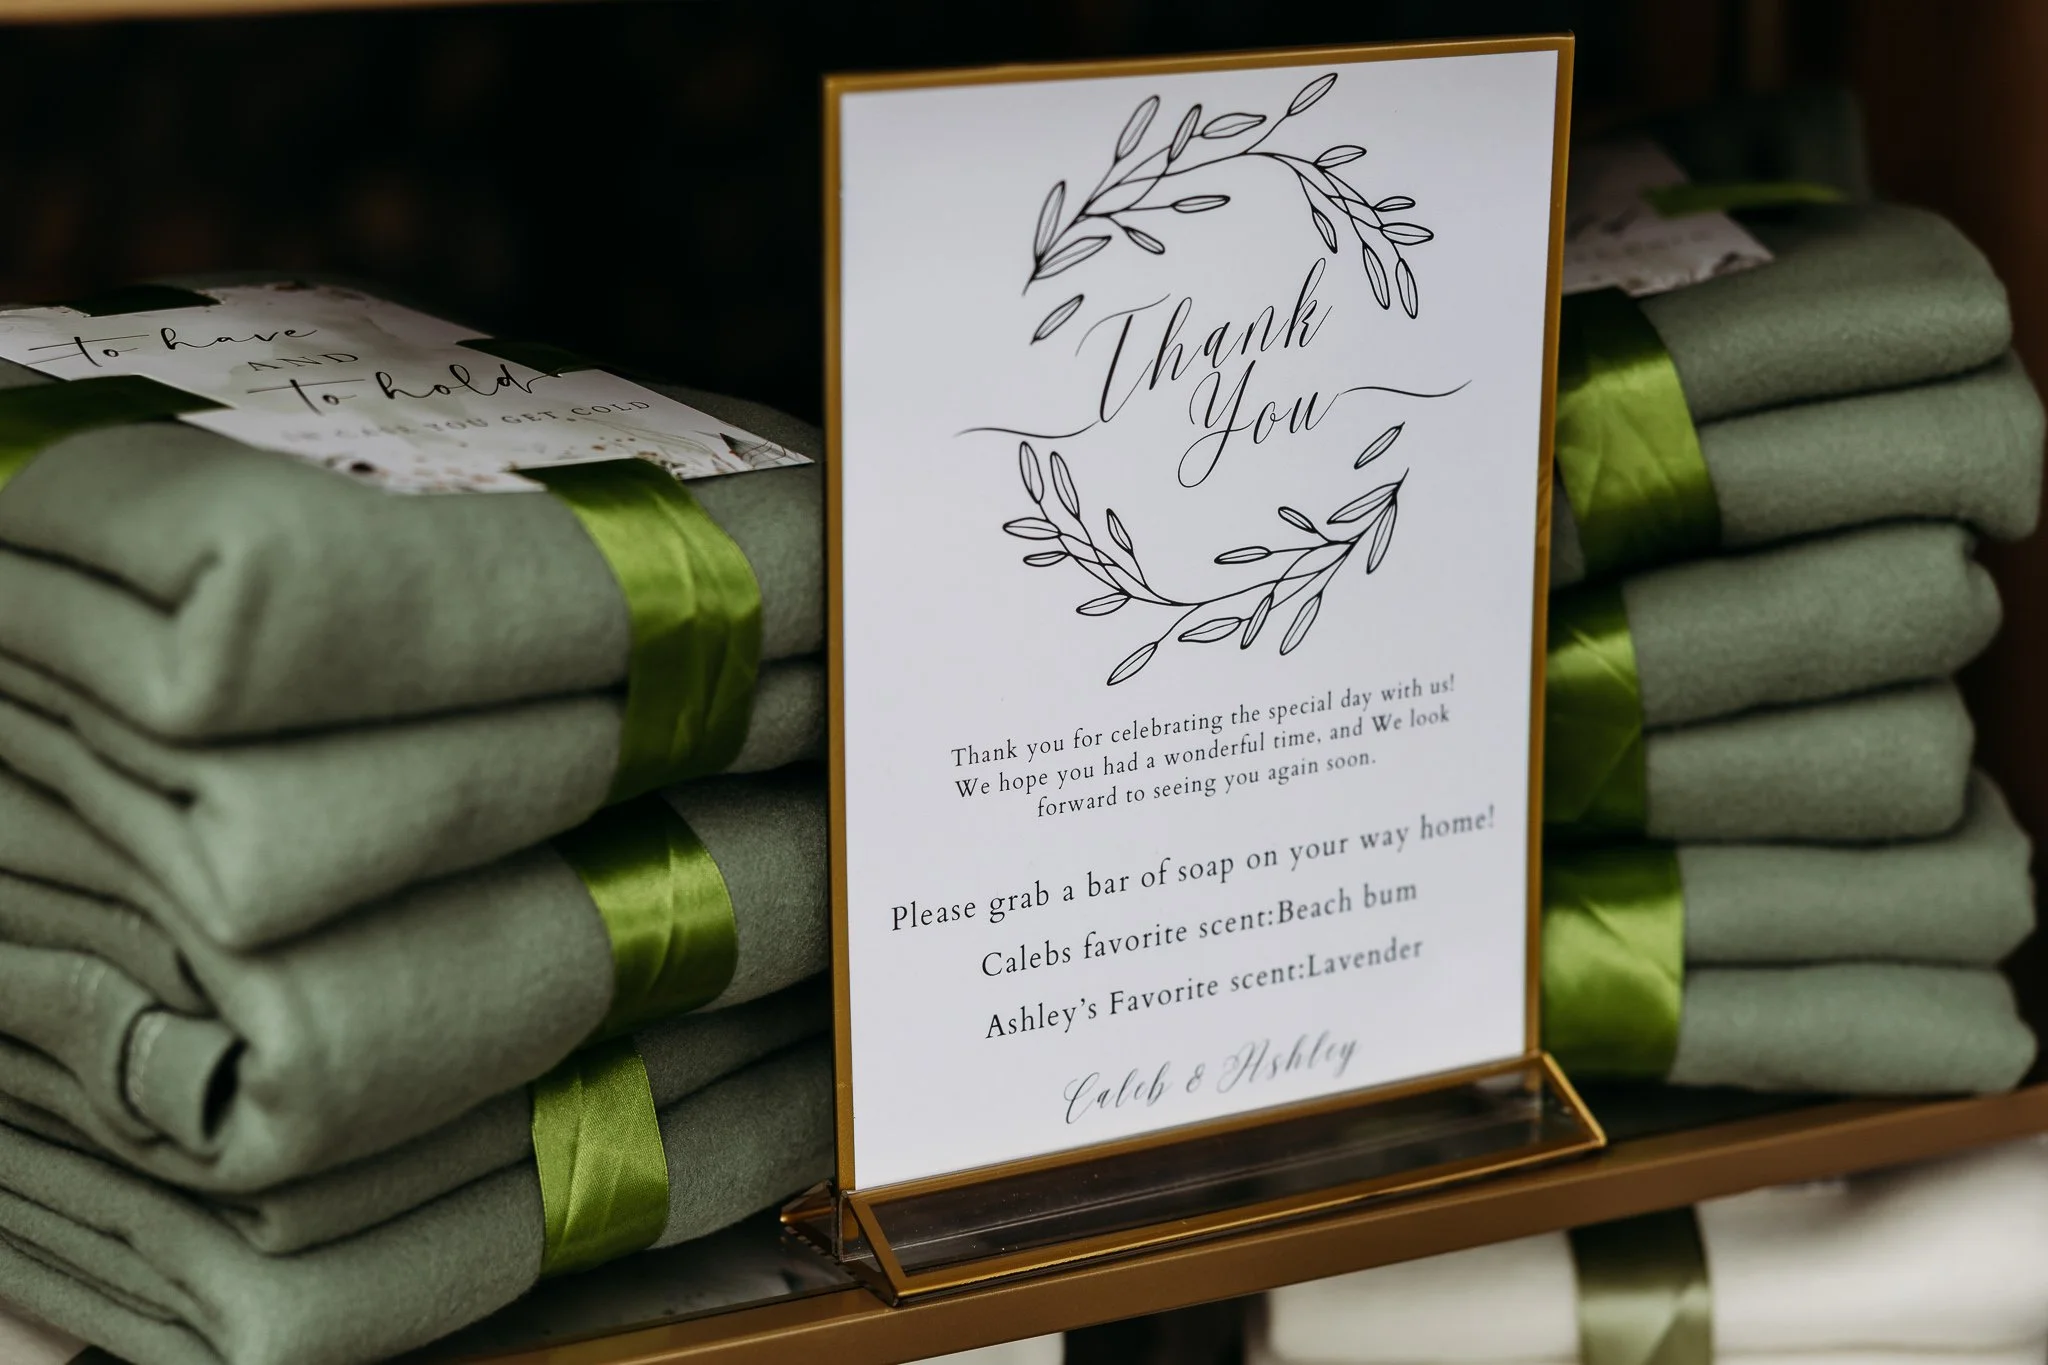 to have
AND
to hold
IN CASE YOU GET COLD
Thank
You
Thank you for celebrating the special day with us!
We hope you had a wonderful time, and We look
forward to seeing you again soon.
Please grab a bar of soap on your way home!
Calebs favorite scent:Beach bum
Ashley’s Favorite scent:Lavender
Caleb & Ashley